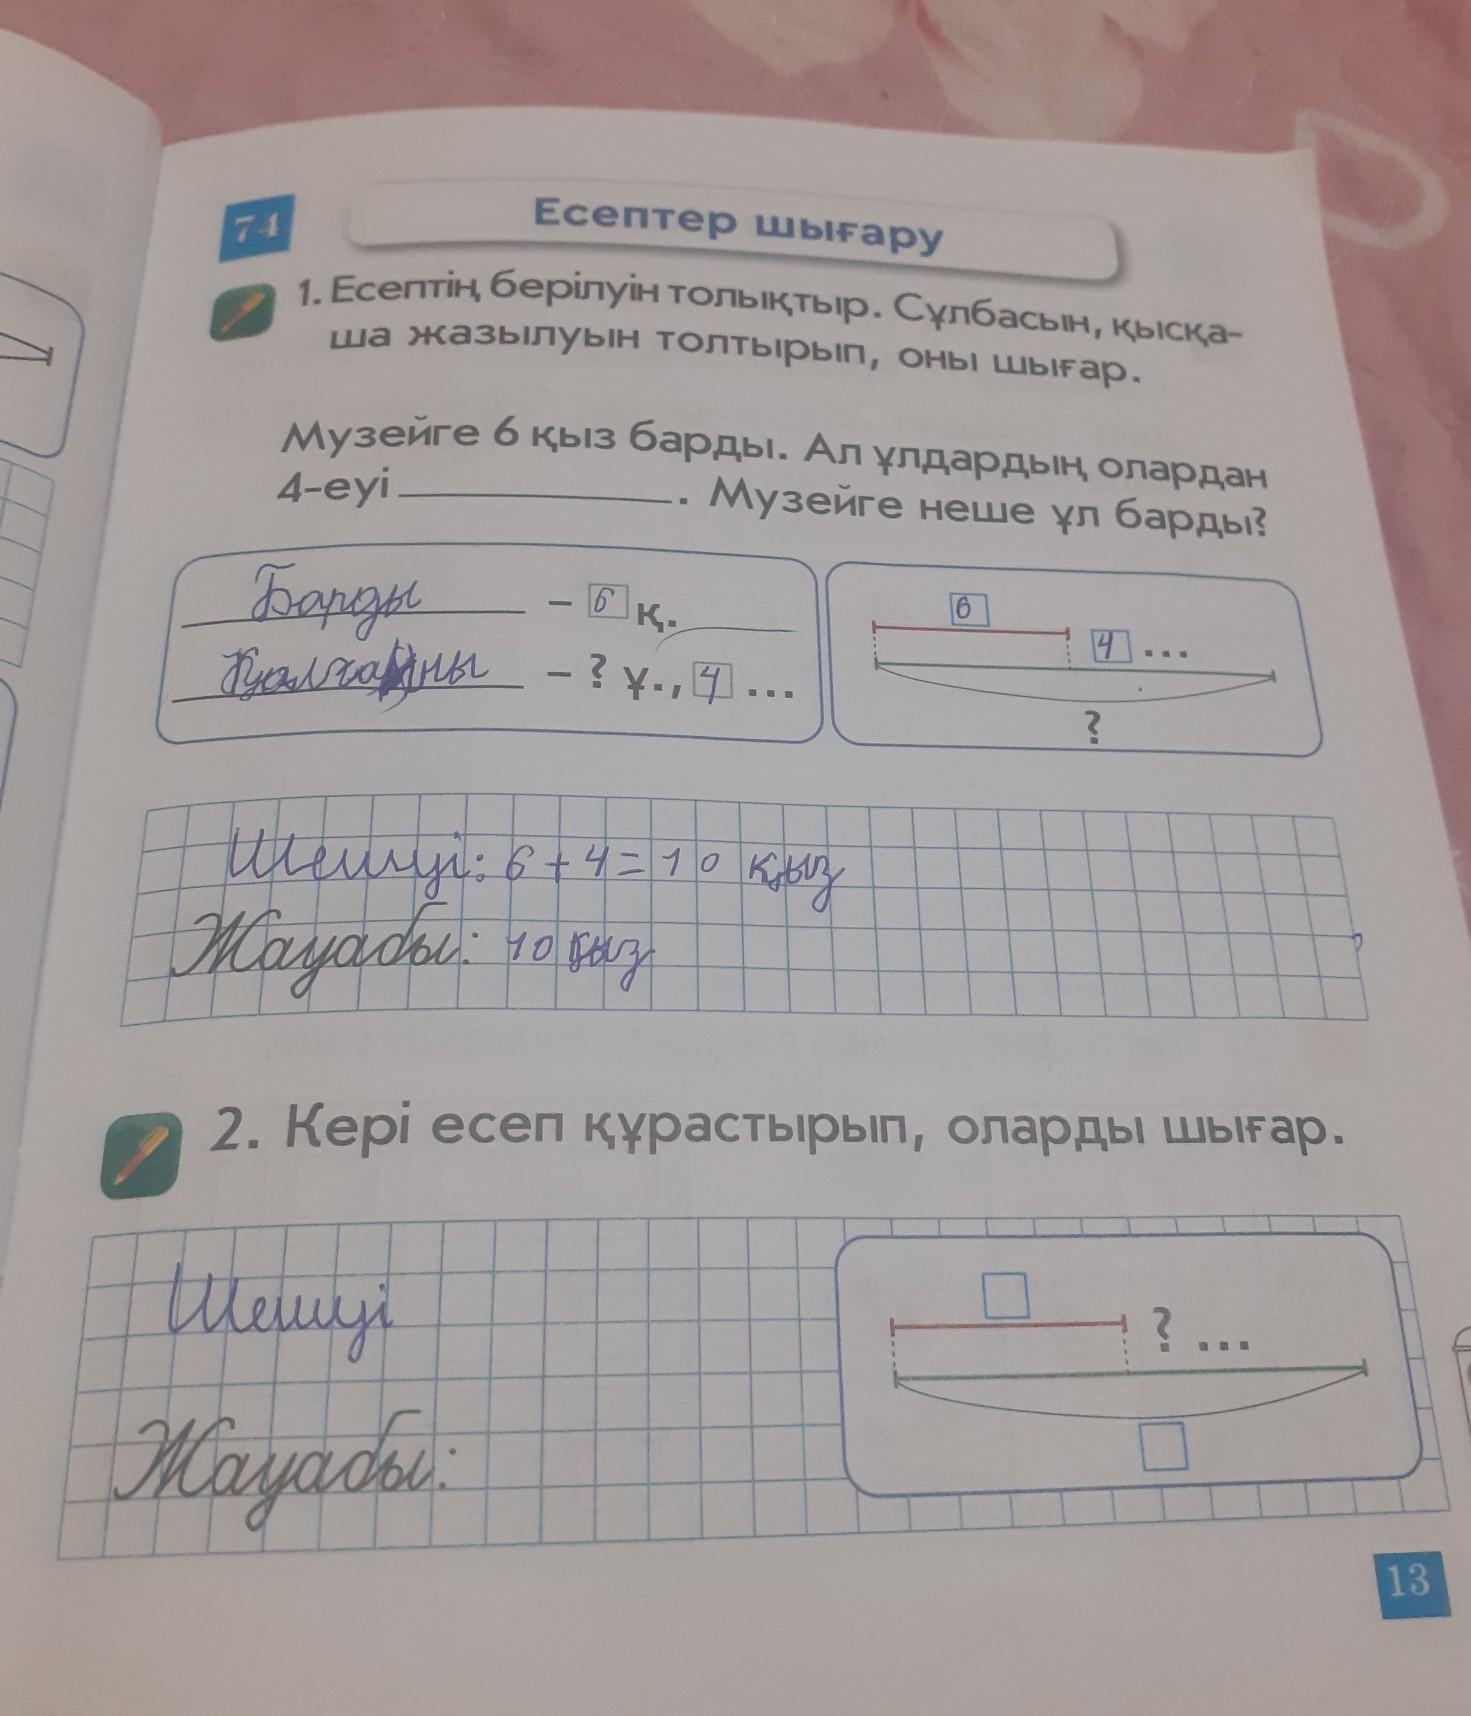 74
Есептер шығару
1. Есептің берілуін толықтыр. Сұлбасын, қысқа-
ша жазылуын толтырып, оны шығар.
Музейге 6 қыз барды. Ал ұлдардың олардан
4-еуі ____________. Музейге неше ұл барды?
Барды – 6 қ.
– ? ұ., 4 ...
6
4 ...
?
Шешуі: 6 + 4 = 10 қыз
Жауабы: 10 қыз
2. Кері есеп құрастырып, оларды шығар.
Шешуі
? ...
Жауабы:
13